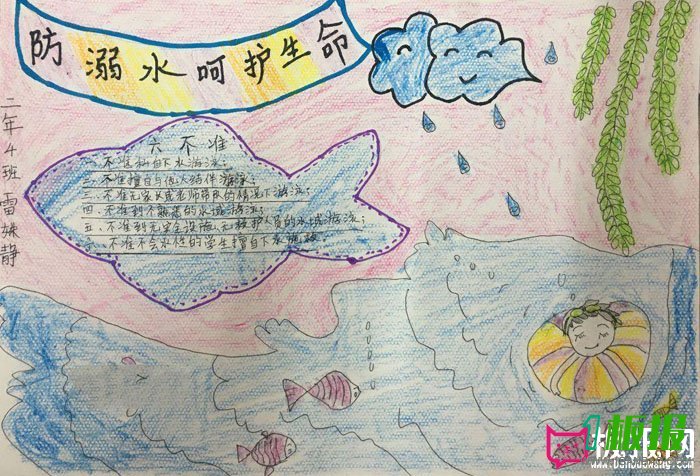 防溺水呵护生命
二年4班 雷姝静
六不准
一、不准私自下水游泳；
二、不准擅自与他人结伴游泳；
三、不准无家长或老师带队的情况下游泳；
四、不准到不熟悉的水域游泳；
五、不准到无安全设施、无救护人员的水域游泳；
六、不准不会水性的学生擅自下水施救
板报网
www.banbaowang.com